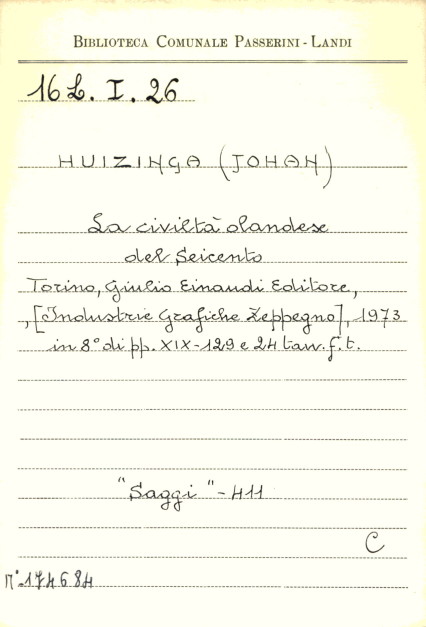 BIBLIOTECA COMUNALE PASSERINI - LANDI
16 L. I. 26
HUIZINGA (JOHAN)
La civiltà olandese
del Seicento
Torino, Giulio Einaudi Editore,
, [Industrie Grafiche Zeppegno], 1973
in 8° di pp. XIX-129 e 24 tav. f. t.
"Saggi" - 411
C
n° 174684